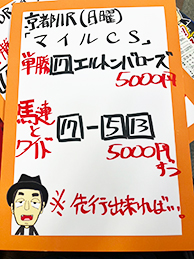 京都11R(日曜)
「マイルCS」
単勝17エルトンバローズ
5000円
馬連とワイド 17-5 13
5000円ずつ
※先行出来れば…。